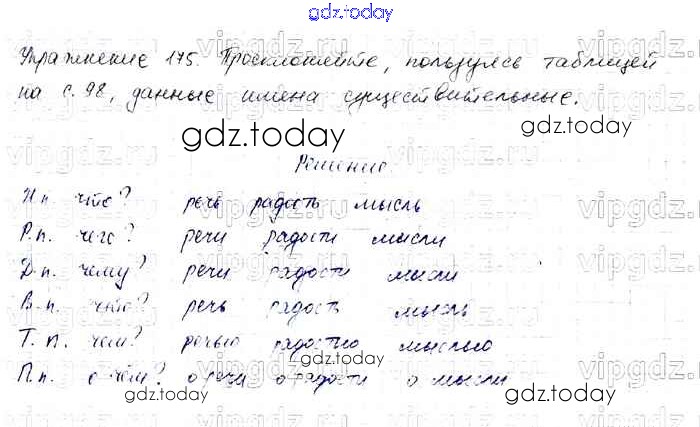 gdz.today
Упражнение 175. Просклоняйте, пользуясь таблицей
на с. 98, данные имена существительные.
gdz.today
gdz.today
Решение.
И.п. что? речь радость мысль
Р.п. чего? речи радости мысли
Д.п. чему? речи радости мысли
В.п. что? речь радость мысль
Т.п. чем? речью радостью мыслью
gdz.today
П.п. о чём? о речи о радости о мысли
gdz.today
gdz.today